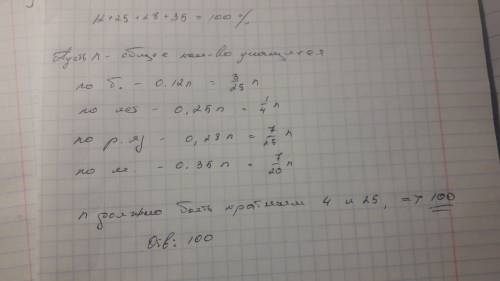 12+25+28+35 = 100 %
Пусть n - общее кол-во учащихся
по б. - 0.12n = 3/25 n
по лит - 0,25n = 1/4 n
по р. яз - 0,28n = 7/25 n
по м. - 0.35n = 7/20 n
n должно быть кратным 4 и 25, => 100
Отв: 100